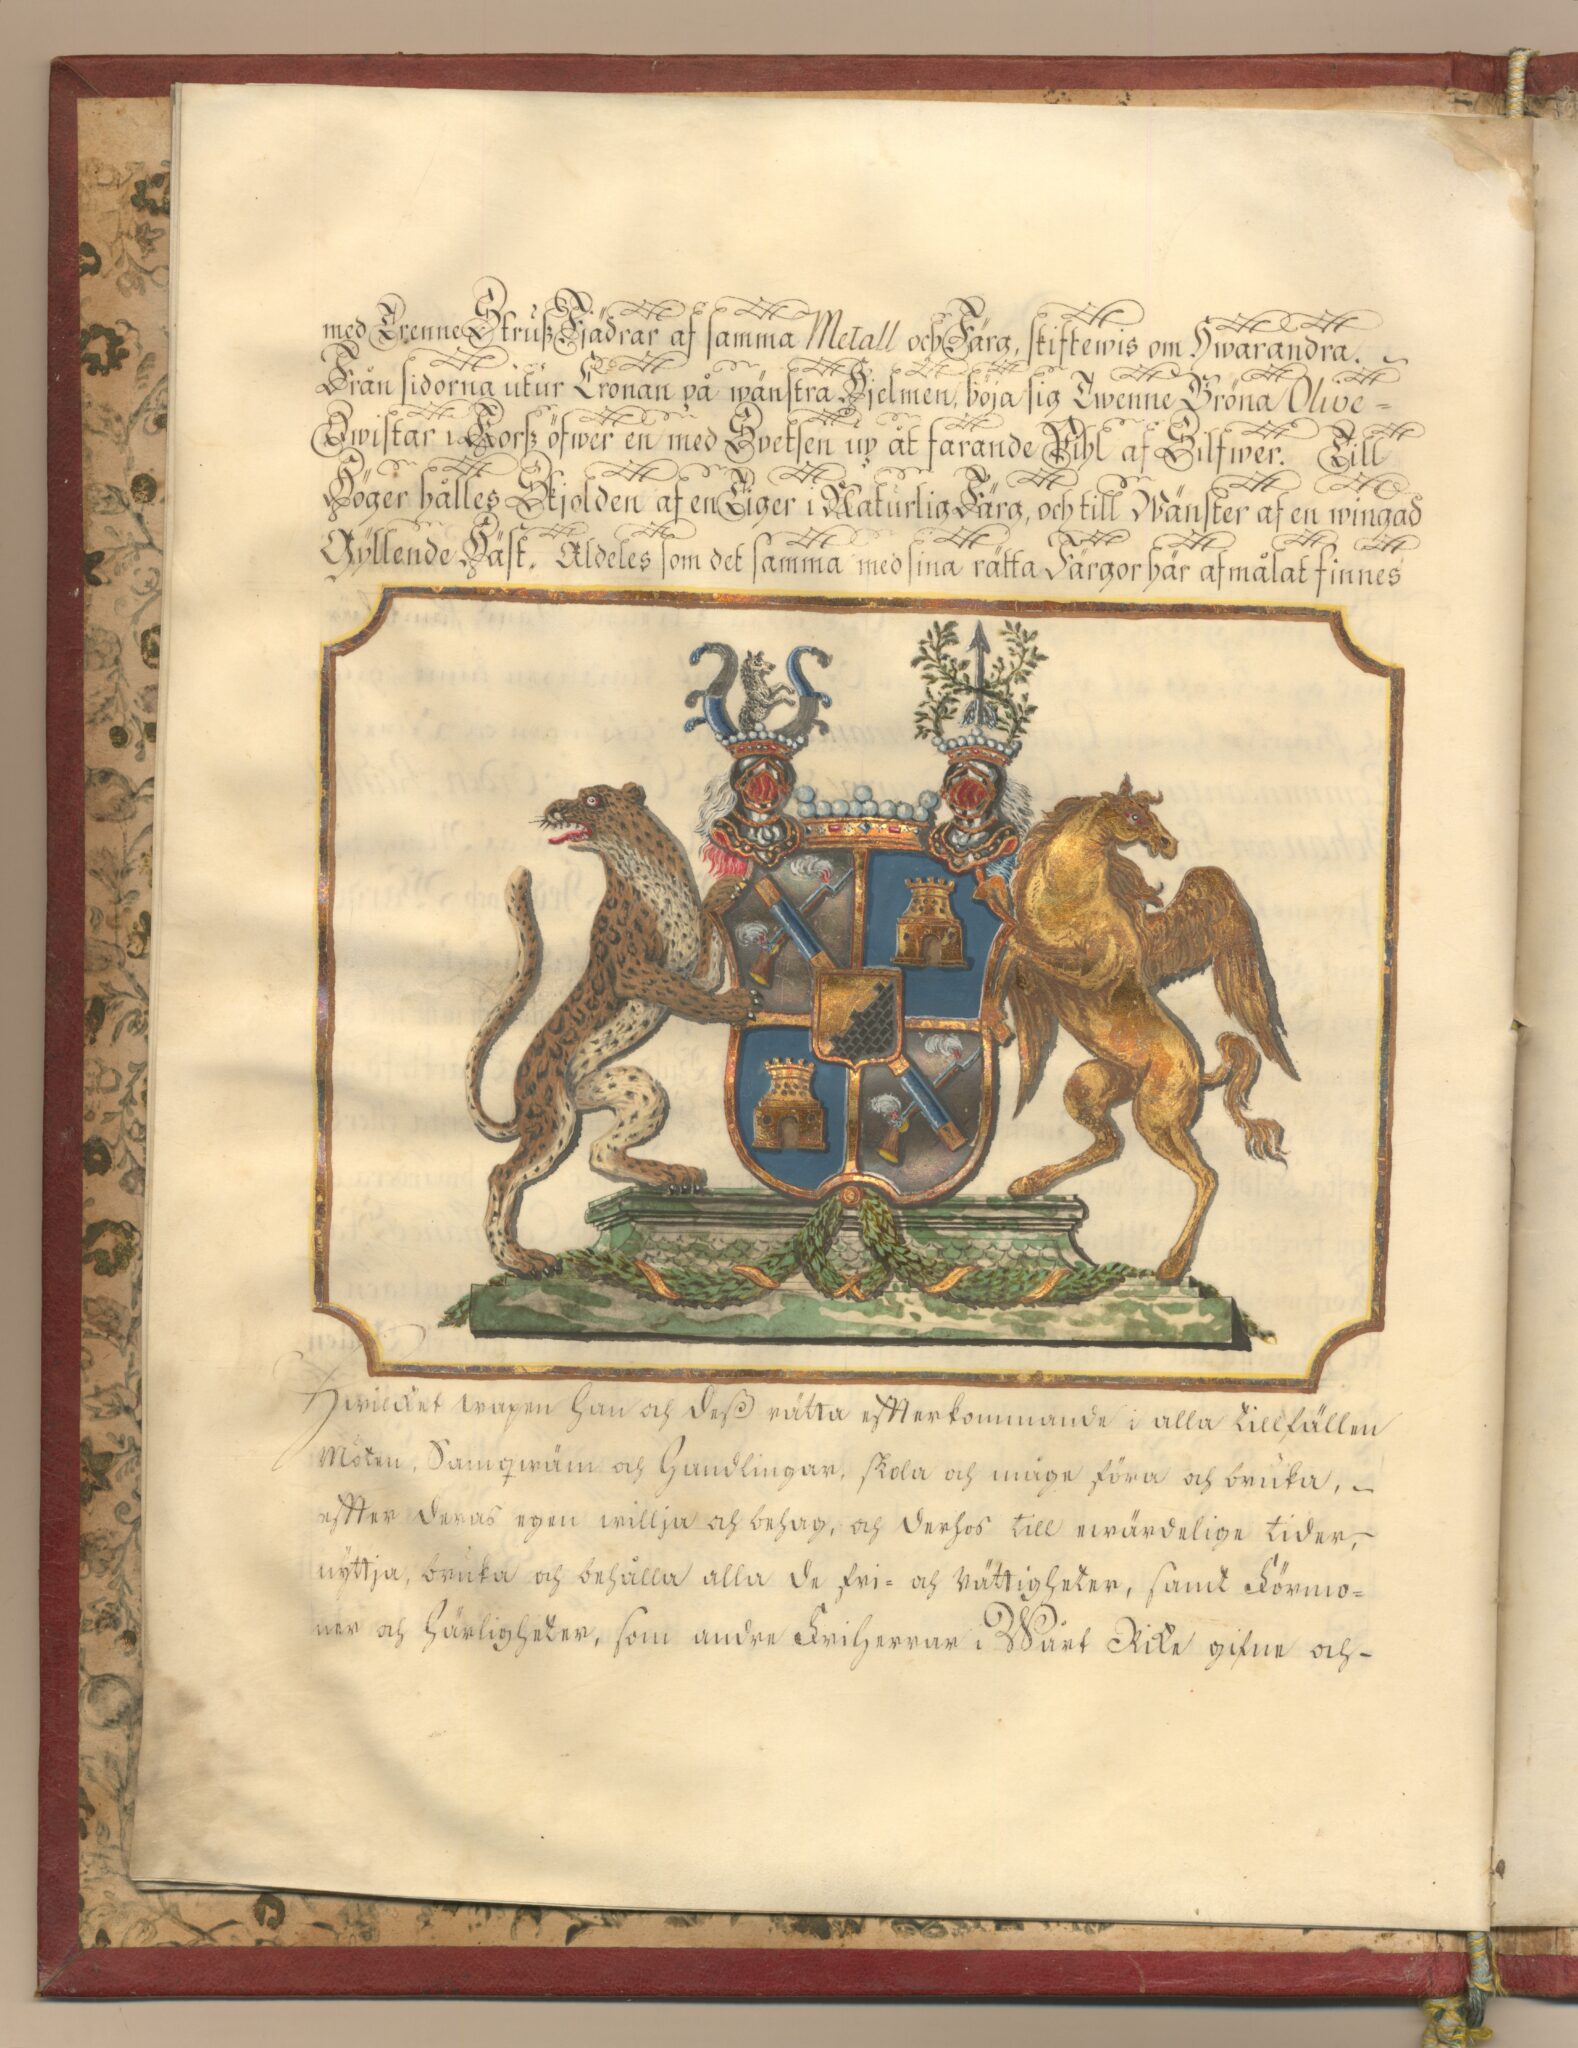 med Trenne Strutz Fjädrar af samma Metall och Färg, skiftewis om Hwarandra.
Från sidorna utur Cronan på wänstra Hjelmen, böja sig Twenne Gröna Olive=
Qwistar i Korß öfwer en med Spetsen up åt farande Pihl af Silfwer. Till
Höger hålles Skjolden af en Tiger i Naturlig Färg, och till Wänster af en wingad
Gyllende Häst. Aldeles som det samma med sina rätta Färgor här afmålat finnes
Hwilcket wapen Han och Deß rätta effterkommande i alla tillfällen
Möten, Samqwäm och Handlingar, skola och måge föra och bruka,
effter Deras egen willja och behag, och Derhos till ewärdelige tider,
nyttja, bruka och behålla alla De fri= och Rättigheter, samt Förmo=
ner och Härligheter, som andre FriHerrar i Wårt Rike gifne och